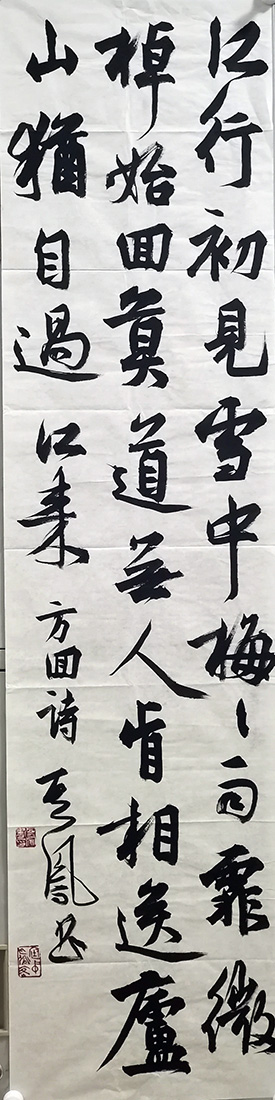 江行初見雪中梅〻雨霏微
棹始回莫道無人肯相送廬
山猶自過江來 方回詩 鳳書